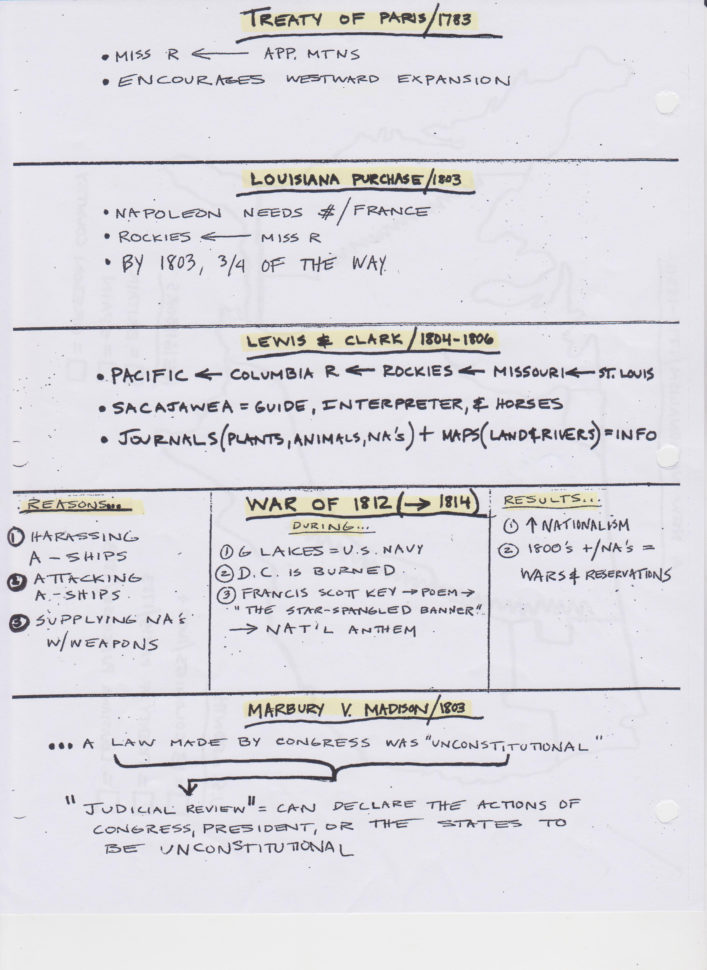 TREATY OF PARIS/1783
• MISS R ← APP. MTNS
• ENCOURAGES WESTWARD EXPANSION
LOUISIANA PURCHASE/1803
• NAPOLEON NEEDS #/FRANCE
• ROCKIES ← MISS R
• BY 1803, 3/4 OF THE WAY.
LEWIS & CLARK/1804-1806
• PACIFIC ← COLUMBIA R ← ROCKIES ← MISSOURI ← ST. LOUIS
• SACAJAWEA = GUIDE, INTERPRETER, & HORSES
• JOURNALS (PLANTS, ANIMALS, NA'S) + MAPS (LAND & RIVERS) = INFO
REASONS...
① HARASSING
A-SHIPS
② ATTACKING
A-SHIPS.
③ SUPPLYING NA'S
W/WEAPONS
WAR OF 1812 (→ 1814)
DURING...
① G LAKES = U.S. NAVY
② D.C. IS BURNED.
③ FRANCIS SCOTT KEY → POEM →
"THE STAR-SPANGLED BANNER"
→ NAT'L ANTHEM
RESULTS...
① ↑ NATIONALISM
② 1800'S +/NA'S =
WARS & RESERVATIONS
MARBURY V. MADISON/1803
... A LAW MADE BY CONGRESS WAS "UNCONSTITUTIONAL"
"JUDICIAL REVIEW" = CAN DECLARE THE ACTIONS OF
CONGRESS, PRESIDENT, OR THE STATES TO
BE UNCONSTITUTIONAL